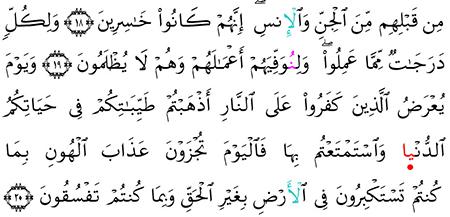 مِن قَبْلِهِم مِّنَ ٱلْجِنِّ وَٱلْإِنسِ ۖ إِنَّهُمْ كَانُوا۟ خَـٰسِرِينَ ﴿١٨﴾ وَلِكُلٍّ
دَرَجَـٰتٌ مِّمَّا عَمِلُوا۟ ۖ وَلِنُوَفِّيَهُمْ أَعْمَـٰلَهُمْ وَهُمْ لَا يُظْلَمُونَ ﴿١٩﴾ وَيَوْمَ
يُعْرَضُ ٱلَّذِينَ كَفَرُوا۟ عَلَى ٱلنَّارِ أَذْهَبْتُمْ طَيِّبَـٰتِكُمْ فِى حَيَاتِكُمُ
ٱلدُّنْيا وَٱسْتَمْتَعْتُم بِهَا فَٱلْيَوْمَ تُجْزَوْنَ عَذَابَ ٱلْهُونِ بِمَا
كُنتُمْ تَسْتَكْبِرُونَ فِى ٱلْأَرْضِ بِغَيْرِ ٱلْحَقِّ وَبِمَا كُنتُمْ تَفْسُقُونَ ﴿٢٠﴾